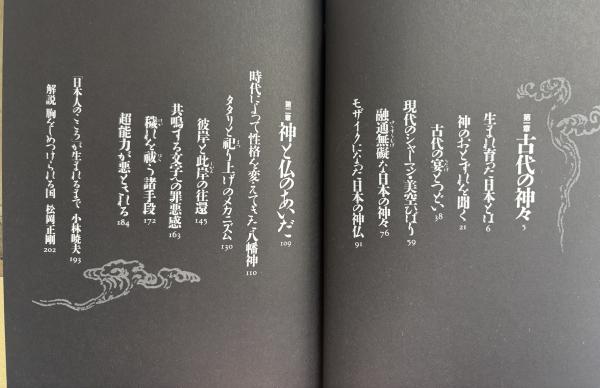 第一章 古代の神々 5
生まれ育った日本とは 6
神のおとずれを聞く 21
古代の宴とつどい 38
現代のシャーマン・美空ひばり 59
融通無礙な日本の神々 76
モザイクになった日本の神仏 91
第二章 神と仏のあいだ 109
時代によって性格を変えてきた八幡神 110
タタリと祀り上げのメカニズム 130
彼岸と此岸の往還 145
共鳴する文学への罪悪感 163
穢れを祓う諸手段 172
超能力が悪とされる 184
「日本人のこころ」が生まれるまで 小林暁夫 193
解説 胸をしめつけられる国 松岡正剛 202